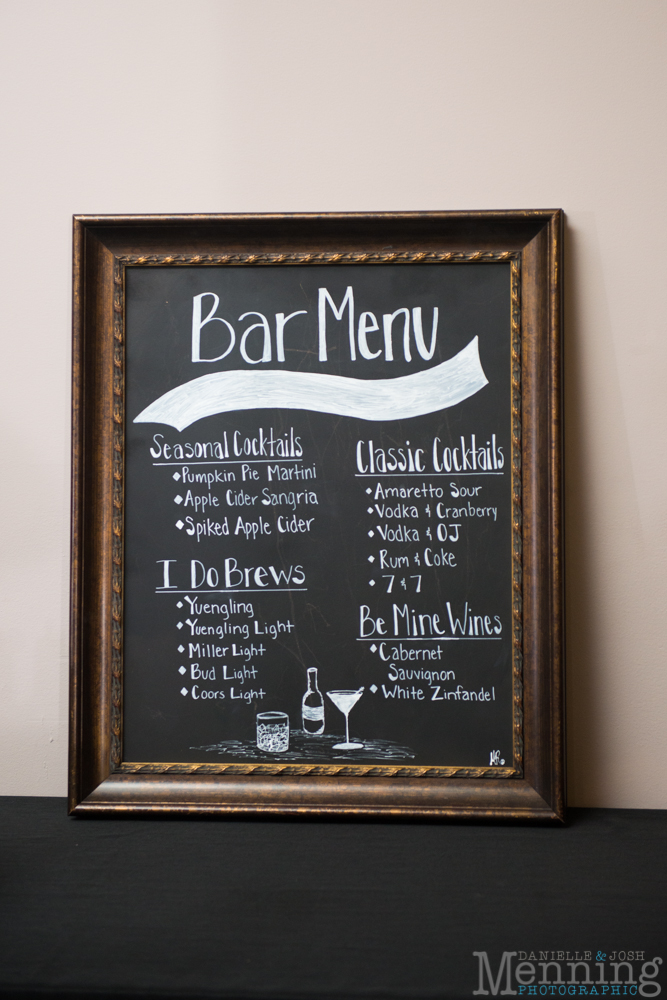 Bar Menu
Seasonal Cocktails
Pumpkin Pie Martini
Apple Cider Sangria
Spiked Apple Cider
I Do Brews
Yuengling
Yuengling Light
Miller Light
Bud Light
Coors Light
Classic Cocktails
Amaretto Sour
Vodka & Cranberry
Vodka & OJ
Rum & Coke
7 & 7
Be Mine Wines
Cabernet
Sauvignon
White Zinfandel
DANIELLE & JOSH
Menning
PHOTOGRAPHIC